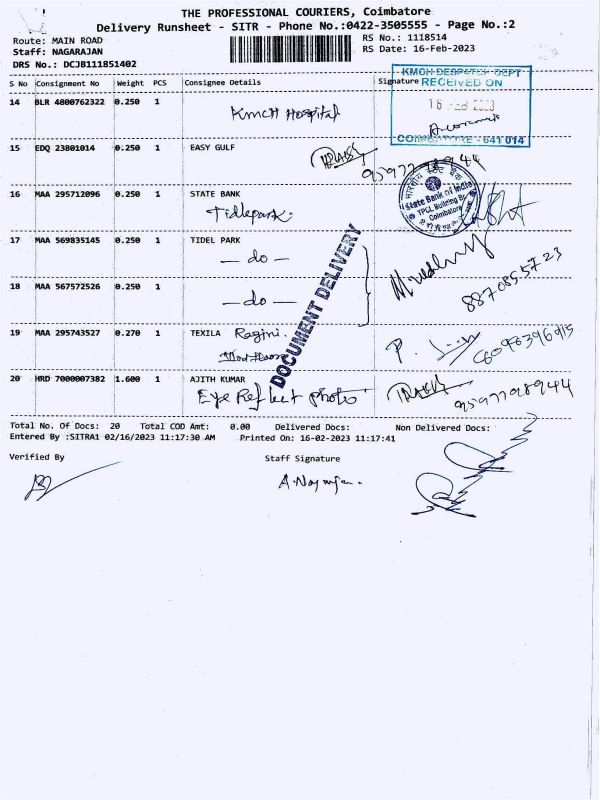 THE PROFESSIONAL COURIERS, Coimbatore
Delivery Runsheet - SITR - Phone No.:0422-3505555 - Page No.:2
Route: MAIN ROAD
Staff: NAGARAJAN
DRS No.: DCJB111851402
RS No.: 1118514
RS Date: 16-Feb-2023
S No Consignment No Weight PCS Consignee Details Signature
KMCH DESPATCH DEPT
RECEIVED ON
16 FEB 2023
COIMBATORE - 641 014
14 BLR 4800762322 0.250 1 KMCH Hospital
15 EDQ 23801014 0.250 1 EASY GULF
16 MAA 295712096 0.250 1 STATE BANK
Tidlepark.
State Bank of India
TPCL Building Br.
Coimbatore
17 MAA 569835145 0.250 1 TIDEL PARK
— do —
18 MAA 567572526 0.250 1
— do —
8870855723
DOCUMENT DELIVERY
19 MAA 295743527 0.270 1 TEXILA Ragini.
20 HRD 7000007382 1.600 1 AJITH KUMAR
Eye Reflect photo
9597798944
Total No. Of Docs: 20 Total COD Amt: 0.00 Delivered Docs: Non Delivered Docs:
Entered By :SITRA1 02/16/2023 11:17:30 AM Printed On: 16-02-2023 11:17:41
Verified By Staff Signature
A. Nagarajan.